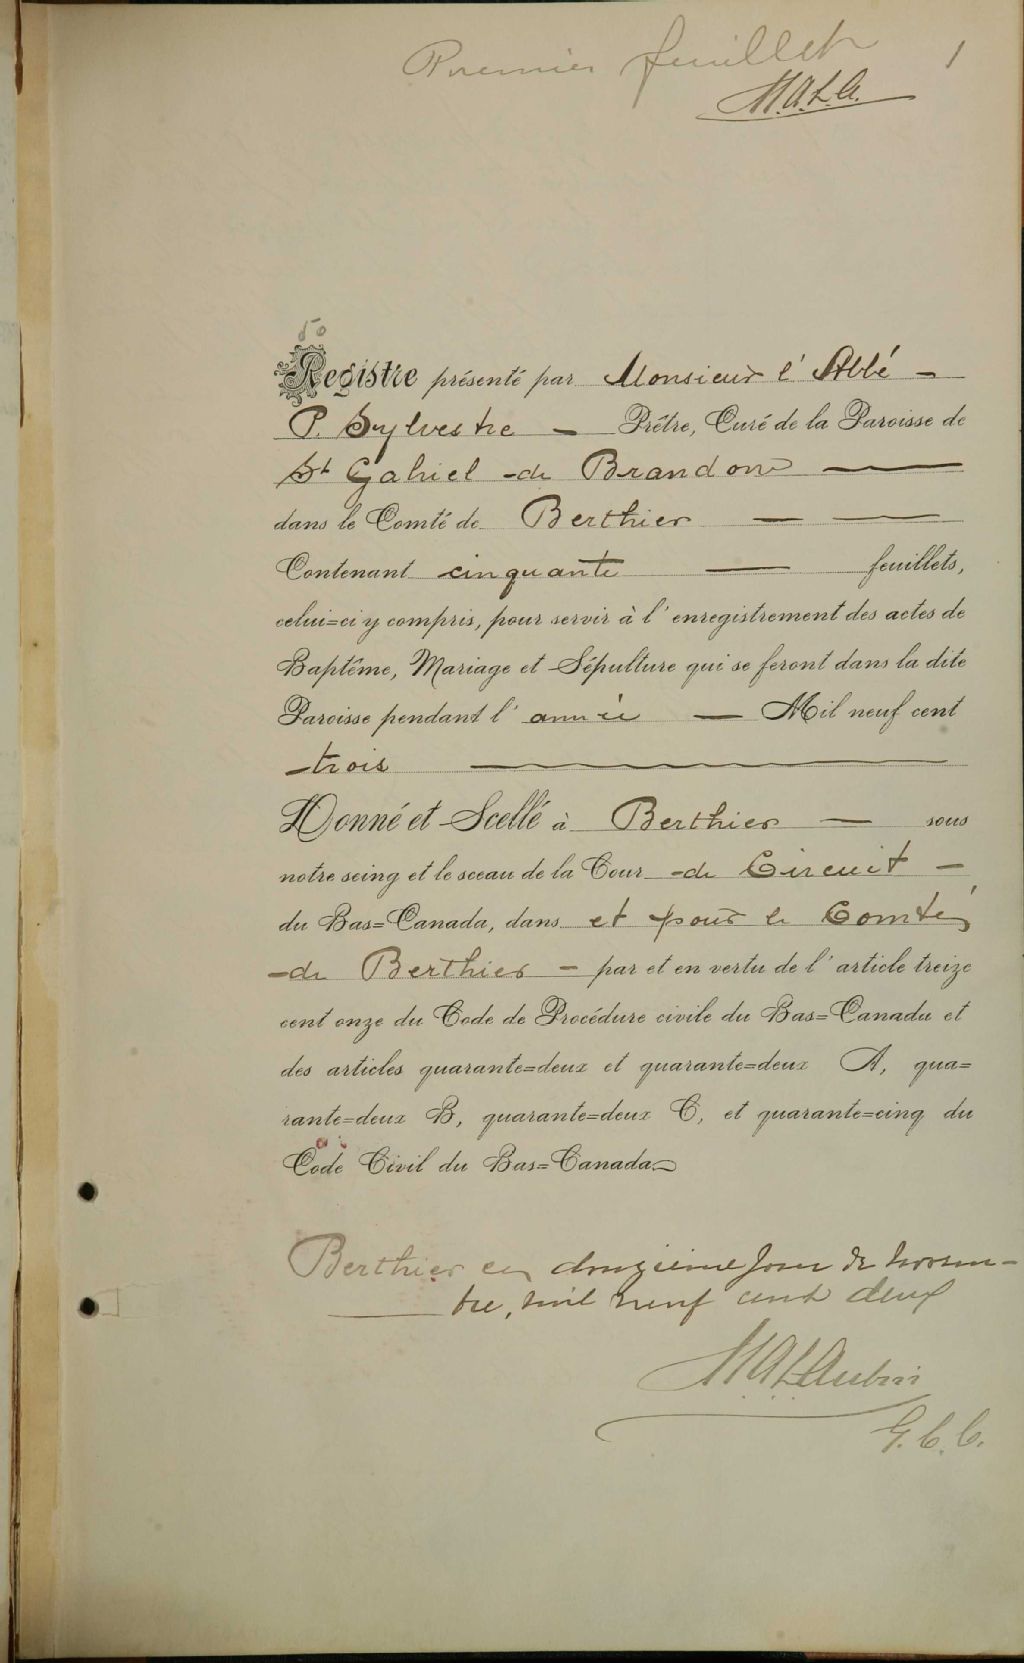 Premier feuillet 1
M.A.L.A.
50
Registre présenté par Monsieur l'Abbé –
P. Sylvestre – Prêtre, Curé de la Paroisse de
St Gabriel de Brandon —
dans le Comté de Berthier — —
Contenant cinquante — feuillets,
celui=ci y compris, pour servir à l'enregistrement des actes de
Baptême, Mariage et Sépulture qui se feront dans la dite
Paroisse pendant l'année — Mil neuf cent
trois —
Donné et Scellé à Berthier — sous
notre seing et le sceau de la Cour de Circuit –
du Bas=Canada, dans et pour le Comté
de Berthier – par et en vertu de l'article treize
cent onze du Code de Procédure civile du Bas=Canada et
des articles quarante=deux et quarante=deux A, qua=
rante=deux B, quarante=deux C, et quarante=cinq du
Code Civil du Bas=Canada.
Berthier ce douzième jour de novem-
bre, mil neuf cent deux
M A L Aubin
G.C.C.